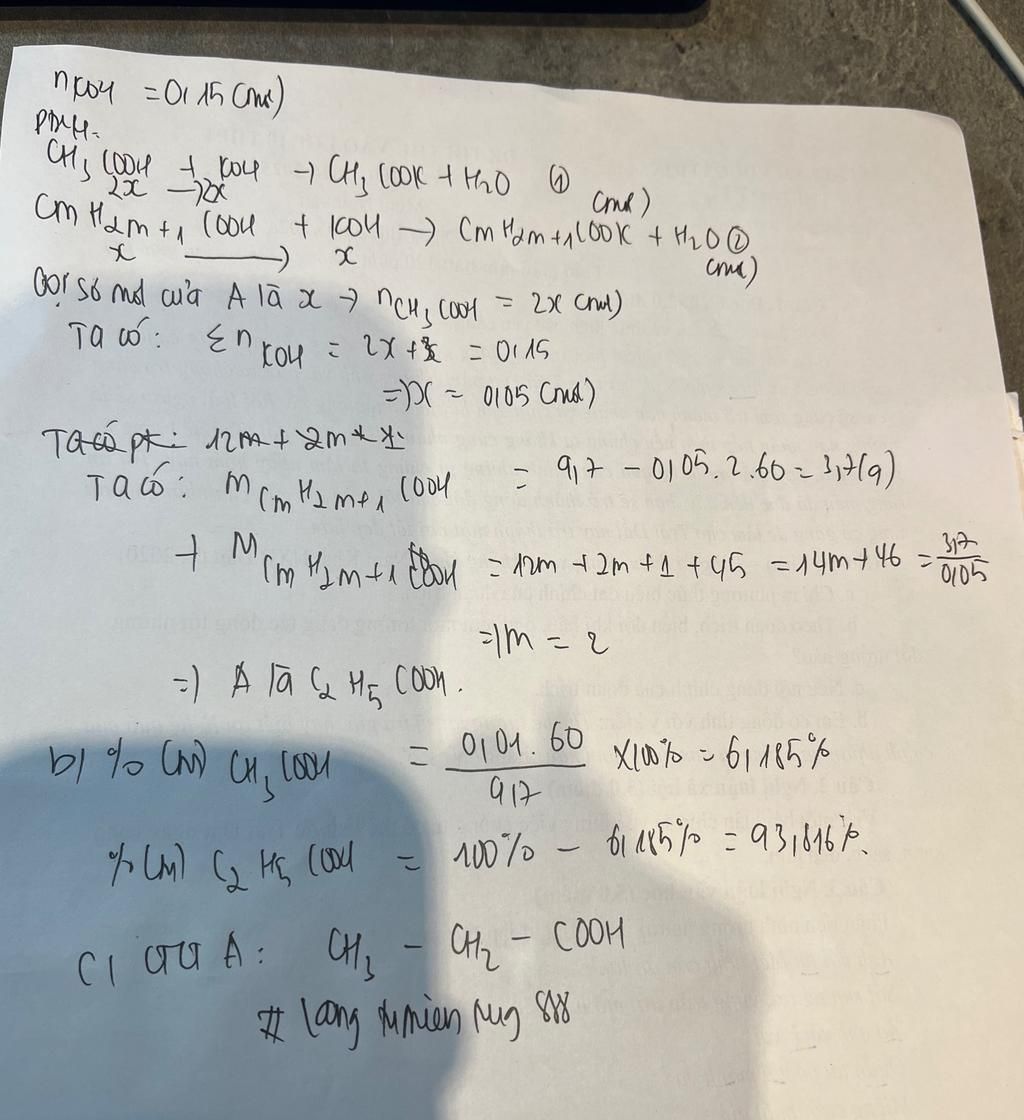 nKOH = 0,15 (mol)
PTHH:
CH3COOH + KOH → CH3COOK + H2O ①
2x → 2x (mol)
CmH2m+1COOH + KOH → CmH2m+1COOK + H2O ②
x → x (mol)
Gọi số mol của A là x → nCH3COOH = 2x (mol)
Ta có: ΣnKOH = 2x + x = 0,15
=> x = 0,05 (mol)
Ta có pt: 12m + 2m + 1
Ta có: mCmH2m+1COOH = 9,7 - 0,05.2.60 = 3,7(g)
+ MCmH2m+1COOH = 12m + 2m + 1 + 45 = 14m + 46 = 3,7/0,05
=> m = 2
=> A là C2H5COOH.
b) %(m) CH3COOH = 0,01.60/9,7 x100% = 6,185%
%(m) C2H5COOH = 100% - 6,185% = 93,816%.
c) CTCT A: CH3 - CH2 - COOH
#